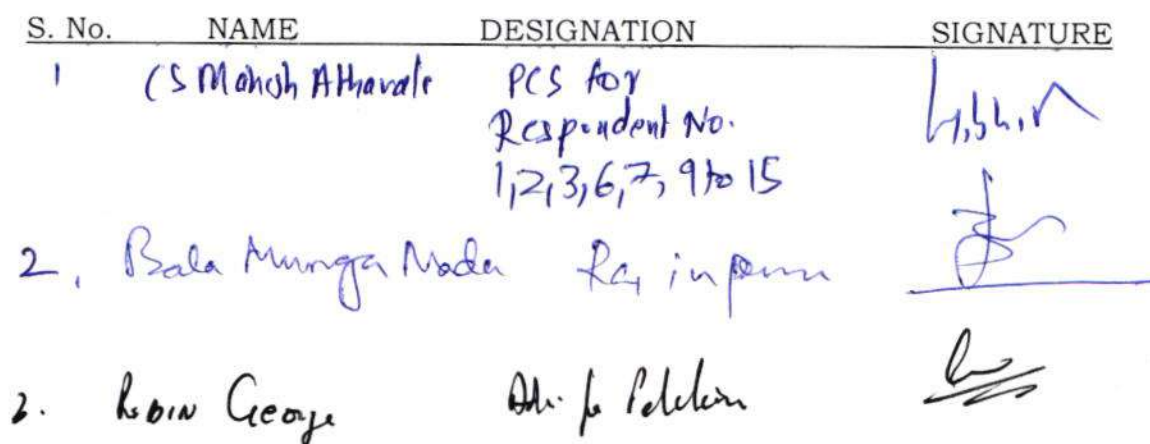 S. No. NAME DESIGNATION SIGNATURE
1 CS Mahesh Athavale PCS for
Respondent No.
1,2,3,6,7, 9 to 15
2, Bala Munga Nada in
3. ROBIN George Adv. for